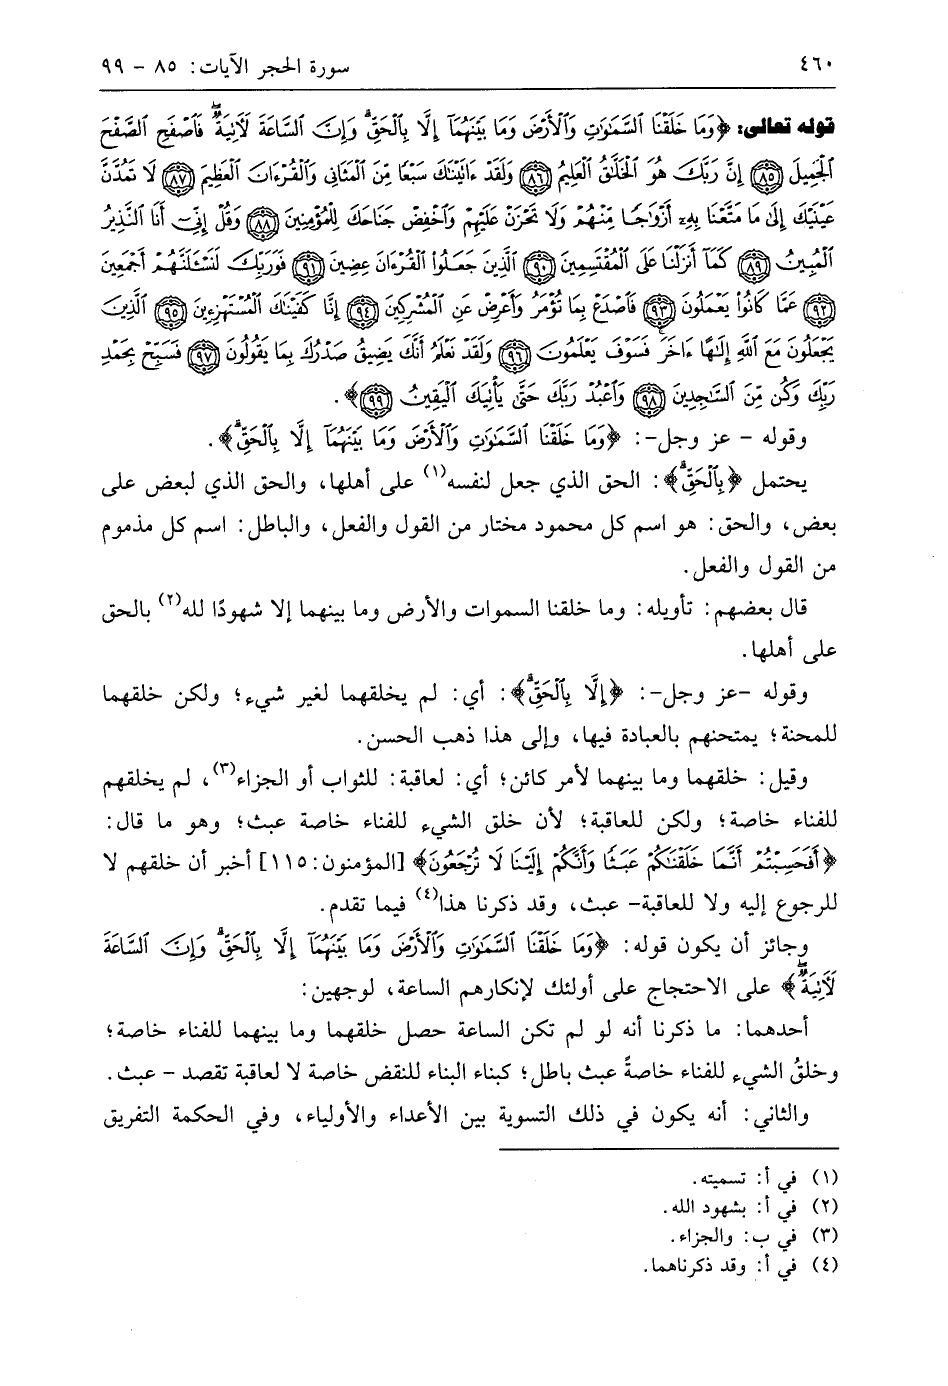 ٤٦٠ سورة الحجر الآيات: ٨٥ - ٩٩
قوله تعالى: ﴿وَمَا خَلَقْنَا السَّمَٰوَٰتِ وَالْأَرْضَ وَمَا بَيْنَهُمَآ إِلَّا بِالْحَقِّ ۗ وَإِنَّ السَّاعَةَ لَآتِيَةٌ ۖ فَاصْفَحِ الصَّفْحَ
الْجَمِيلَ ﴿٨٥﴾ إِنَّ رَبَّكَ هُوَ الْخَلَّٰقُ الْعَلِيمُ ﴿٨٦﴾ وَلَقَدْ ءَاتَيْنَٰكَ سَبْعًا مِّنَ الْمَثَانِي وَالْقُرْءَانَ الْعَظِيمَ ﴿٨٧﴾ لَا تَمُدَّنَّ
عَيْنَيْكَ إِلَىٰ مَا مَتَّعْنَا بِهِۦٓ أَزْوَٰجًا مِّنْهُمْ وَلَا تَحْزَنْ عَلَيْهِمْ وَاخْفِضْ جَنَاحَكَ لِلْمُؤْمِنِينَ ﴿٨٨﴾ وَقُلْ إِنِّىٓ أَنَا النَّذِيرُ
الْمُبِينُ ﴿٨٩﴾ كَمَآ أَنزَلْنَا عَلَى الْمُقْتَسِمِينَ ﴿٩٠﴾ الَّذِينَ جَعَلُوا الْقُرْءَانَ عِضِينَ ﴿٩١﴾ فَوَرَبِّكَ لَنَسْـَٔلَنَّهُمْ أَجْمَعِينَ
﴿٩٢﴾ عَمَّا كَانُوا يَعْمَلُونَ ﴿٩٣﴾ فَاصْدَعْ بِمَا تُؤْمَرُ وَأَعْرِضْ عَنِ الْمُشْرِكِينَ ﴿٩٤﴾ إِنَّا كَفَيْنَٰكَ الْمُسْتَهْزِءِينَ ﴿٩٥﴾ الَّذِينَ
يَجْعَلُونَ مَعَ اللَّهِ إِلَٰهًا ءَاخَرَ فَسَوْفَ يَعْلَمُونَ ﴿٩٦﴾ وَلَقَدْ نَعْلَمُ أَنَّكَ يَضِيقُ صَدْرُكَ بِمَا يَقُولُونَ ﴿٩٧﴾ فَسَبِّحْ بِحَمْدِ
رَبِّكَ وَكُن مِّنَ السَّٰجِدِينَ ﴿٩٨﴾ وَاعْبُدْ رَبَّكَ حَتَّىٰ يَأْتِيَكَ الْيَقِينُ ﴿٩٩﴾﴾.
وقوله - عز وجل-: ﴿وَمَا خَلَقْنَا السَّمَٰوَٰتِ وَالْأَرْضَ وَمَا بَيْنَهُمَآ إِلَّا بِالْحَقِّ ۗ﴾.
يحتمل ﴿بِالْحَقِّ ۗ﴾: الحق الذي جعل لنفسه(١) على أهلها، والحق الذي لبعض على
بعض، والحق: هو اسم كل محمود مختار من القول والفعل، والباطل: اسم كل مذموم
من القول والفعل.
قال بعضهم: تأويله: وما خلقنا السموات والأرض وما بينهما إلا شهودًا لله(٢) بالحق
على أهلها.
وقوله -عز وجل-: ﴿إِلَّا بِالْحَقِّ ۗ﴾: أي: لم يخلقهما لغير شيء؛ ولكن خلقهما
للمحنة؛ يمتحنهم بالعبادة فيها، وإلى هذا ذهب الحسن.
وقيل: خلقهما وما بينهما لأمر كائن؛ أي: لعاقبة: للثواب أو الجزاء(٣)، لم يخلقهم
للفناء خاصة؛ ولكن للعاقبة؛ لأن خلق الشيء للفناء خاصة عبث؛ وهو ما قال:
﴿أَفَحَسِبْتُمْ أَنَّمَا خَلَقْنَٰكُمْ عَبَثًا وَأَنَّكُمْ إِلَيْنَا لَا تُرْجَعُونَ﴾ [المؤمنون: ١١٥] أخبر أن خلقهم لا
للرجوع إليه ولا للعاقبة- عبث، وقد ذكرنا هذا(٤) فيما تقدم.
وجائز أن يكون قوله: ﴿وَمَا خَلَقْنَا السَّمَٰوَٰتِ وَالْأَرْضَ وَمَا بَيْنَهُمَآ إِلَّا بِالْحَقِّ ۗ وَإِنَّ السَّاعَةَ
لَآتِيَةٌ ۖ﴾ على الاحتجاج على أولئك لإنكارهم الساعة، لوجهين:
أحدهما: ما ذكرنا أنه لو لم تكن الساعة حصل خلقهما وما بينهما للفناء خاصة؛
وخلقُ الشيء للفناء خاصةً عبث باطل؛ كبناء البناء للنقض خاصة لا لعاقبة تقصد - عبث.
والثاني: أنه يكون في ذلك التسوية بين الأعداء والأولياء، وفي الحكمة التفريق
(١) في أ: تسميته.
(٢) في أ: بشهود الله.
(٣) في ب: والجزاء.
(٤) في أ: وقد ذكرناهما.